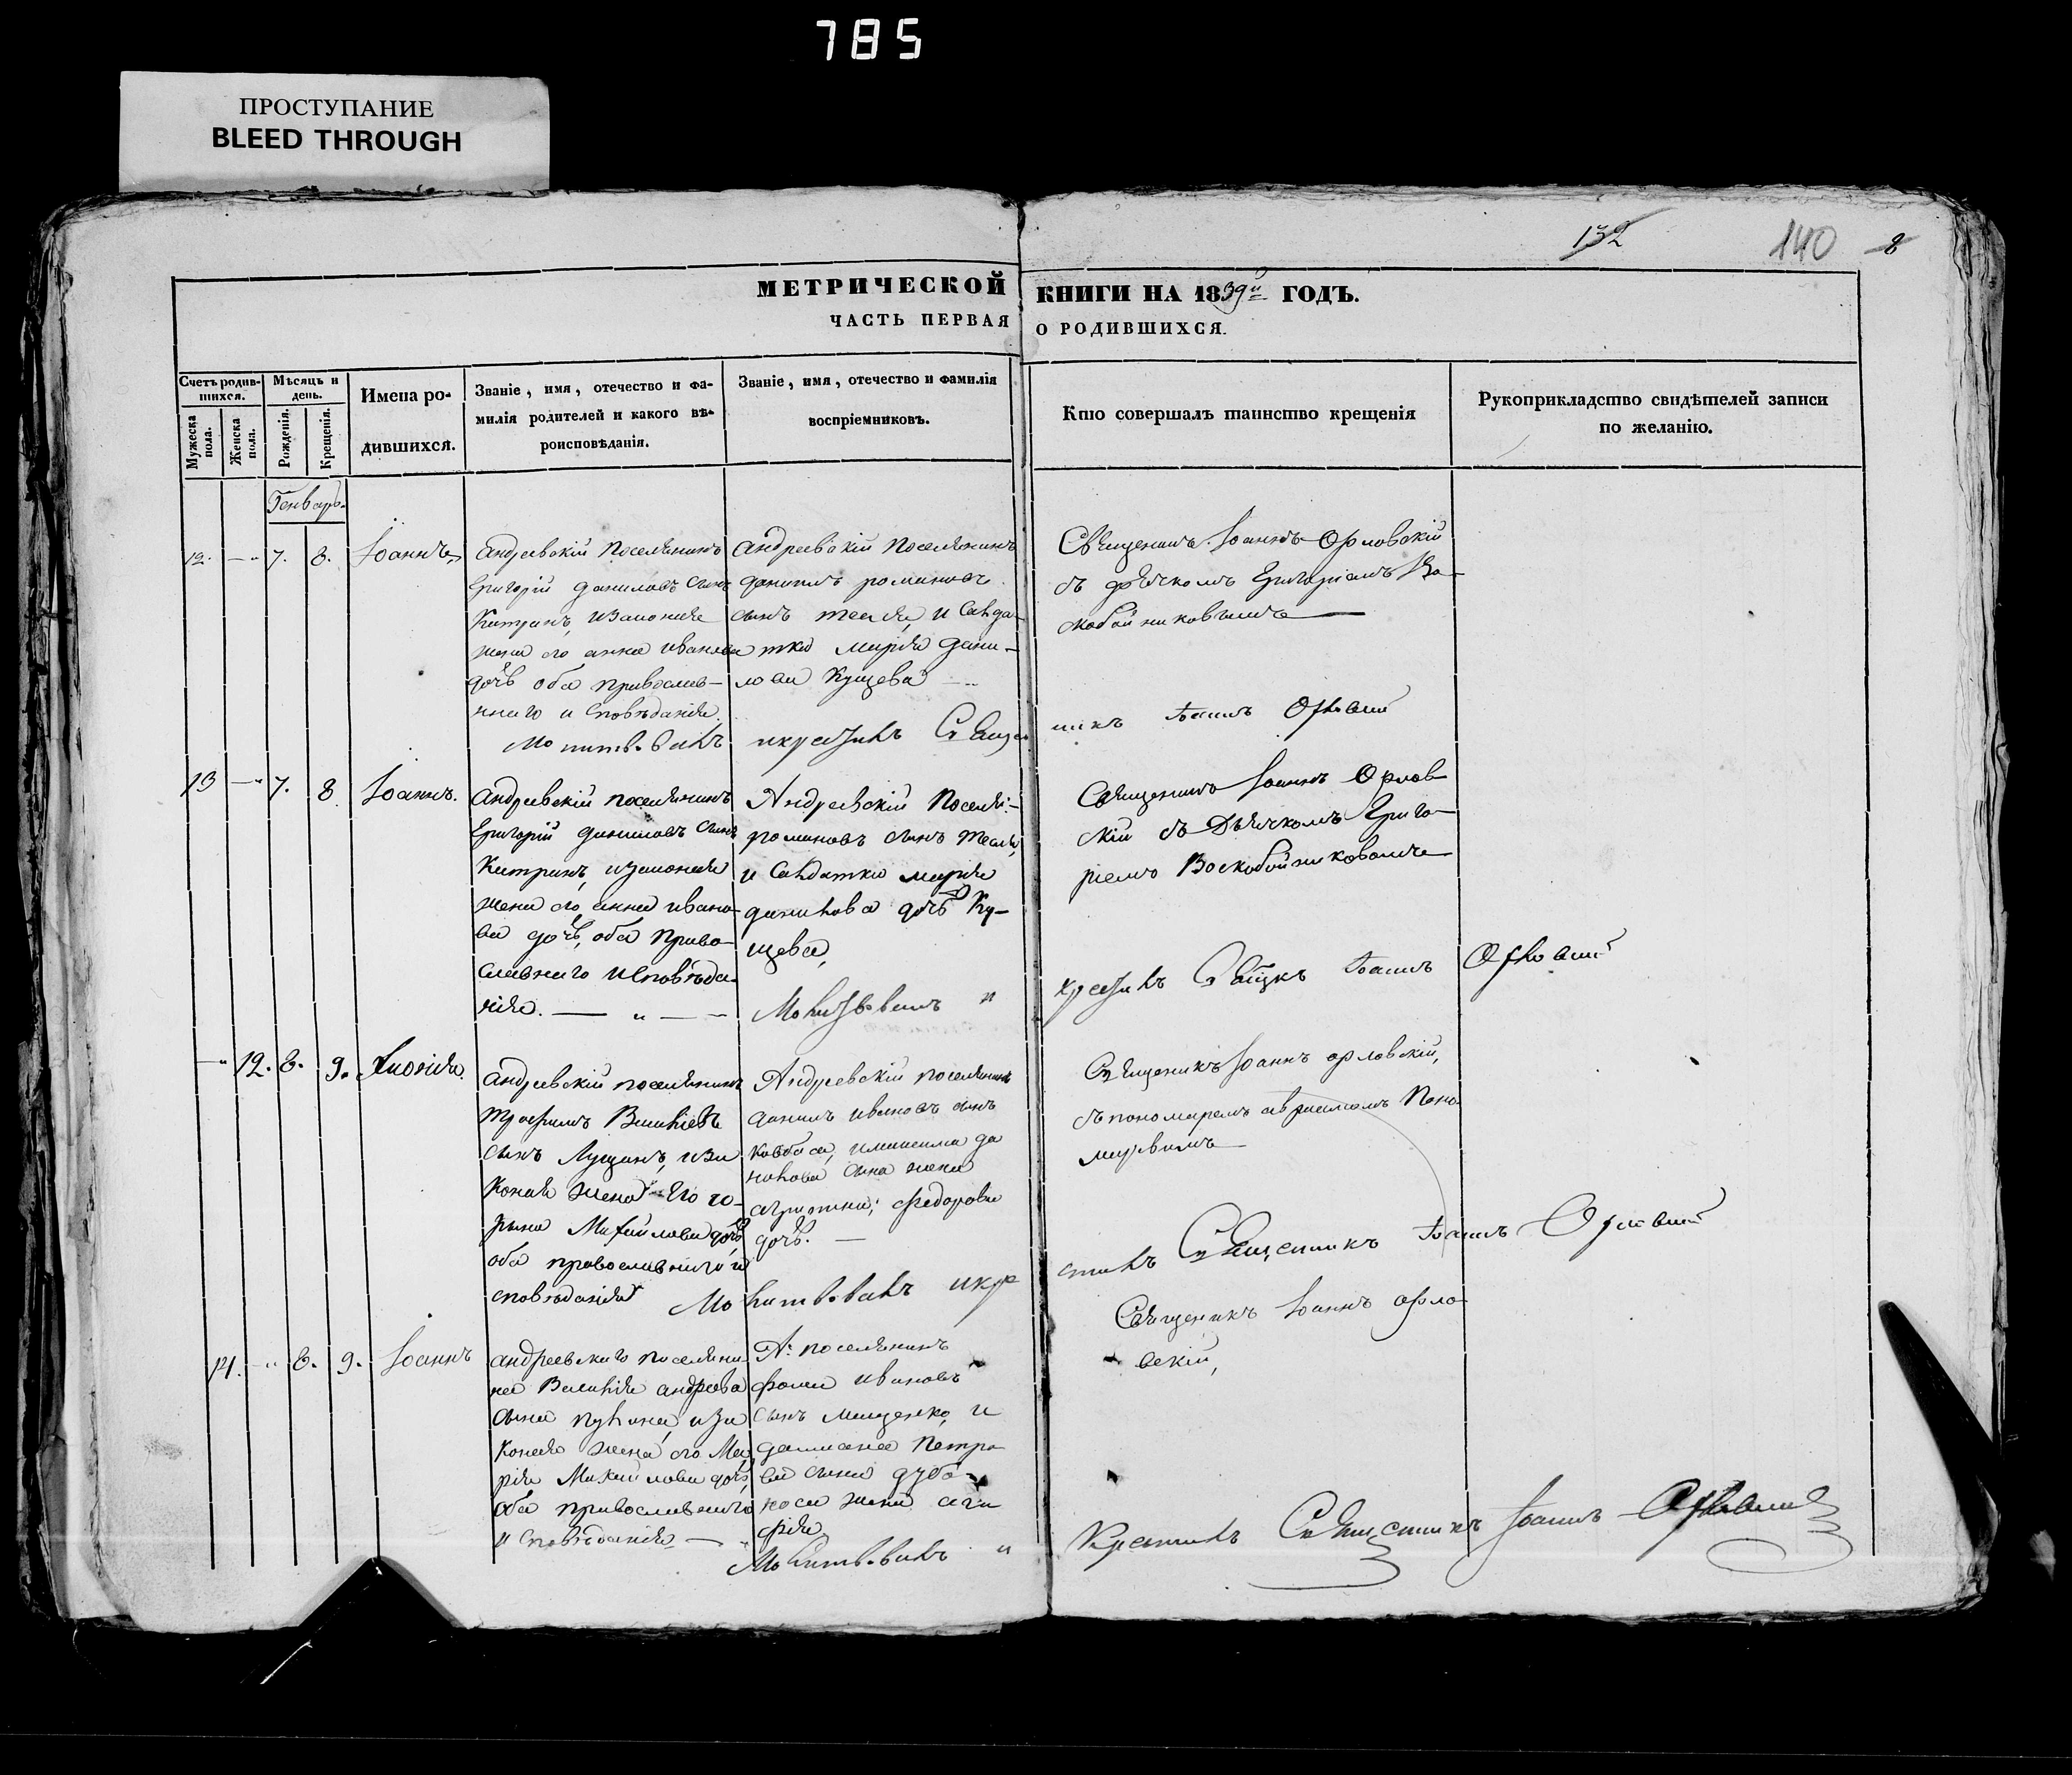 785
ПРОСТУПАНИЕ
BLEED THROUGH
132
140 8
МЕТРИЧЕСКОЙ КНИГИ НА 1839й ГОДЪ.
ЧАСТЬ ПЕРВАЯ О РОДИВШИХСЯ.
Счетъ родив-
шихся.
Мужеска
пола.
Женска
пола.
Мѣсяцъ и
день.
Рожденія.
Крещенія.
Имена ро-
дившихся.
Званіе, имя, отечество и фа-
милія родителей и какого вѣ-
роисповѣданія.
Званіе, имя, отечество и фамилія
воспріемниковъ.
Кто совершалъ таинство крещенія
Рукоприкладство свидѣтелей записи
по желанію.
Генварь
12. 7. 8. Іоаннъ
Андреевскій поселянинъ
Григорій Даниловъ сынъ
жена его анна иванова
дочь оба православ-
наго исповѣданія
Андреевскій Поселянинъ
сынъ и Салда-
тка марія дани-
лова Кущева
Священникъ Іоаннъ Орловскій
съ дьячкомъ Григоріемъ Во-
скобойниковымъ
Молитвовалъ икрестилъ Священникъ Іоаннъ Орловскій
13 7. 8 Іоаннъ.
Андреевскій поселянинъ
Григорій даниловъ сынъ
жена его анна ивано-
ва дочь, оба право-
славнаго исповѣда-
нія.
Андреевскій Поселя:
романовъ сынъ
и Салдатка марія
данилова дочь Ку-
щева,
Священникъ Іоаннъ Орлов-
скій съ Дьячкомъ Григо-
ріемъ Воскобойниковымъ
Молитвовалъ и крестилъ Іоаннъ Орловскій
12. 8. 9.
Андреевскій поселянинъ
сынъ Лущанъ, иза
конная жена его го-
рпина Михайлова дочь
оба православнаго и
сповѣданія
Андреевскій поселянинъ
ивановъ сынъ
ковбаса,
сына жена
федорова
дочь.
Священникъ Іоаннъ орловскій,
съ пономаремъ Поно-
Молитвовалъ икрестилъ Священникъ Іоаннъ Орловскій
14. 8. 9. Іоаннъ
андреевскаго поселяни-
на Василія андреева
сына иза
конная жена его Ма
рія Михайлова дочь,
оба православнаго
исповѣданія
А: поселянинъ
фома ивановъ
сынъ и
даміана Петро-
ва сына дубо-
носа жена ага
фія
Священникъ Іоаннъ орло-
вскій,
Молитвовалъ и Крестилъ Священникъ Іоаннъ Орловскій